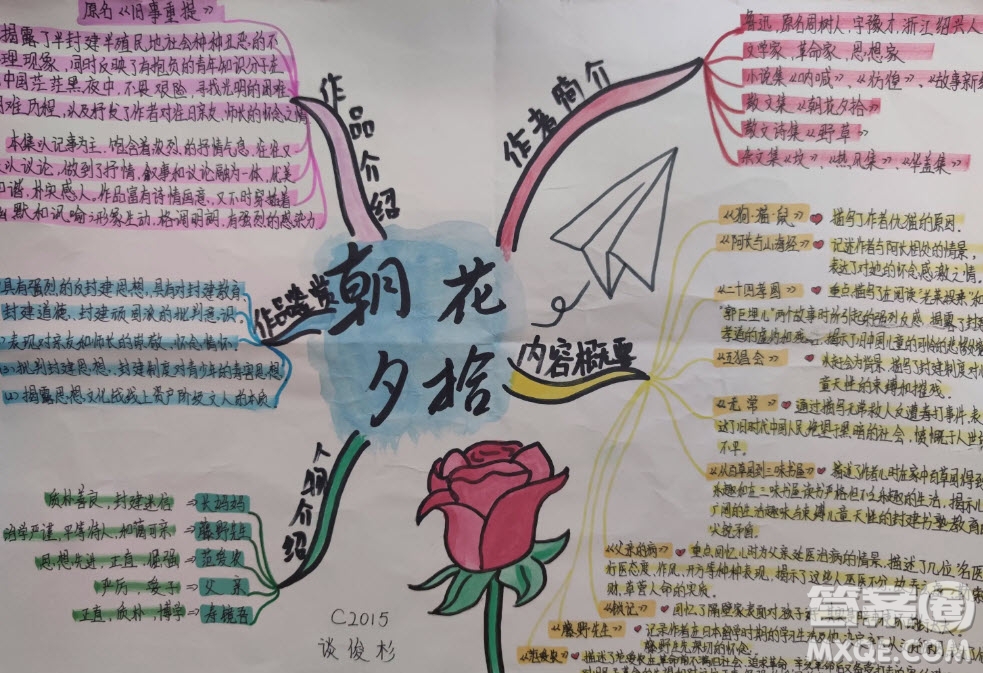 朝花夕拾
作品介绍
原名《旧事重提》
揭露了半封建半殖民地社会种种丑恶的不
理现象，同时反映了有抱负的青年知识分子在
中国茫茫黑夜中，不畏艰险，寻找光明的困难
以及抒发了作者对往日亲友，师长的怀念之情
本集以记事为主，饱含着浓烈的抒情气息，往往又
以议论，做到了抒情，叙事和议论融为一体，优美
和谐，朴实感人。作品富有诗情画意，又不时穿插着
幽默和讽喻；形象生动，格调明朗，有强烈的感染力
作者简介
鲁迅，原名周树人，字豫才，浙江绍兴人
文学家，革命家，思想家
小说集《呐喊》、《彷徨》、《故事新编
散文集《朝花夕拾》
散文诗集《野草》
杂文集《坟》、《热风集》、《华盖集》
作品鉴赏
具有强烈的反封建思想，具有对封建教育
封建道德、封建顽固派的批判意识。
表现对亲友和师长的崇敬、怀念情怀。
批判封建思想，封建制度对青少年的毒害思想
揭露思想文化战线上资产阶级文人的本质
内容概要
《狗·猫·鼠》 描写了作者仇猫的原因。
《阿长与山海经》 记述作者与阿长相处的情景，
表达了对她的怀念感激之情。
《二十四孝图》 重点描写了在阅读“老莱娱亲”和
“郭巨埋儿”两个故事时所引起的强烈反感，揭露了封建
孝道的虚伪和残
《五猖会》
童天性的束缚和摧残。
《无常》 通过描写无常救人反遭毒打事件，表
达了旧时代中国人民绝望于黑暗的社会，愤慨于人世间
不平。
《从百草园到三味书屋》 描述了作者儿时在家中百草园得到
乐趣和在三味书屋读书严格但不乏乐趣的生活，揭示儿
广阔的生活趣味与束缚儿童天性的封建书塾教育的
矛盾。
《父亲的病》 重点回忆儿时为父亲延医治病的情景，描述了几位“名医”
行医态度、作风、开方等种种表现，揭示了这些人巫医不分
财，草菅人命的实质。
《琐记》
《藤野先生》 记录作者在日本留学时期的学习生活
《范爱农》
人物介绍
质朴善良，封建迷信 长妈妈
严谨，平等待人，和蔼可亲 藤野先生
思想先进，正直，倔强 范爱农
严厉，爱子 父亲
正直，质朴，博学 寿镜吾
C2015
谈俊杉
答案圈
MXQE.COM